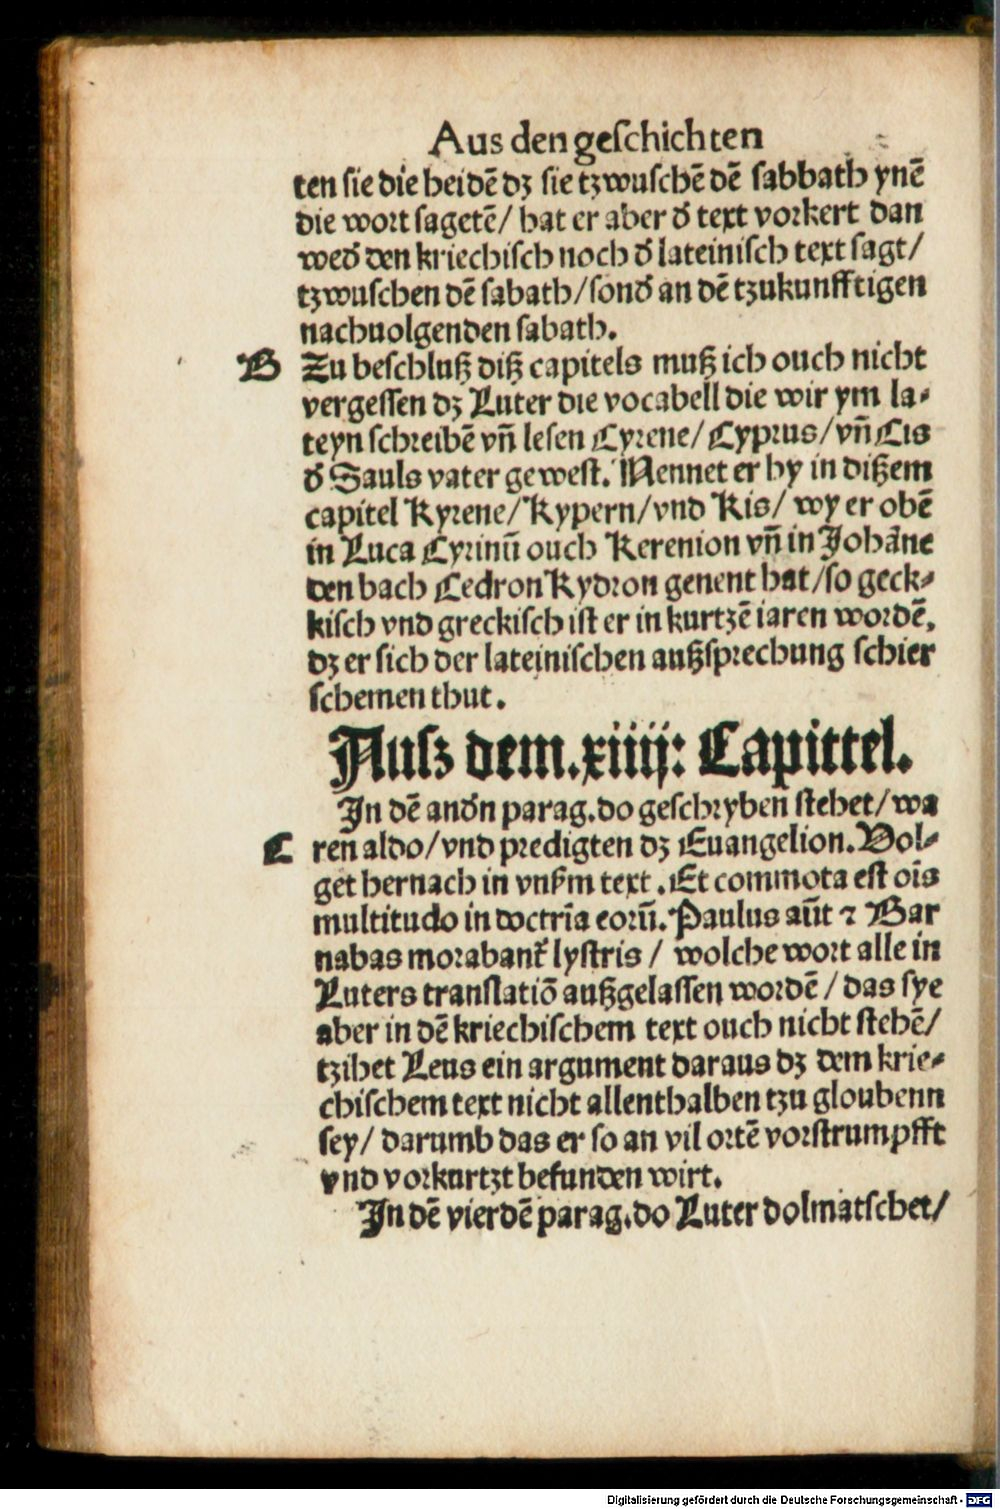 Aus den geſchichten
ten ſie die heidē dz ſie tzwuſchē dē ſabbath ynē
die wort ſagetē/ hat er aber đ text vorkert dan
weđ den kriechiſch noch đ lateiniſch text ſagt/
tzwuſchen dē ſabath/ſonđ an dē tzukunfftigen
nachuolgenden ſabath.
B Zu beſchluß diß capitels muß ich ouch nicht
vergeſſen dz Luter die vocabell die wir ym la⸗
teyn ſchreibē vñ leſen Cyrene/ Cyprus/ vñ Cis
đ Sauls vater geweſt. Nennet er hy in dißem
capitel Kyrene/ Kypern/ vnd Kis/ wy er obē
in Luca Cyrinū ouch Kerenion vñ in Johāne
den bach Cedron Kydron genent hat/ſo geck⸗
kiſch vnd greckiſch iſt er in kurtzē iaren wordē,
dz er ſich der lateiniſchen außſprechung ſchier
ſchemen thut.
Auſz dem.xiiij: Capittel.
In dē anđn parag.do geſchryben ſtehet/ wa
C ren aldo/ vnd predigten dz Euangelion. Vol⸗
get hernach in vnſerm text. Et commota eſt oīs
multitudo in doctrīa eorū. Paulus aūt ⁊ Bar
nabas morabant᷑ lyſtris / wolche wort alle in
Luters tranſlatiō außgelaſſen wordē / das ſye
aber in dē kriechiſchem text ouch nicht ſtehē/
tzihet Leus ein argument daraus dz dem krie⸗
chiſchem text nicht allenthalben tzu gloubenn
ſey/ darumb das er ſo an vil ortē vorſtrumpfft
vnd vorkurtzt befunden wirt.
In dē vierdē parag.do Luter dolmatſchet/
Digitalisierung gefördert durch die Deutsche Forschungsgemeinschaft - DFG